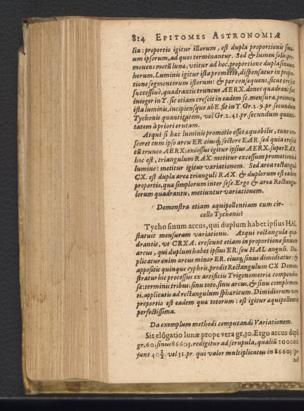 814 EPITOMES ASTRONOMIÆ
lia: proportio igitur illorum, est dupla proportionis sinu-
um ipsorum, ad quos terminantur. Sed & lumen solis pro-
movens meus luna, utitur ad hoc, proportione dupla sinuum
horum. Luminis igitur ista promotio, dispensatur in propor-
tione segmentorum istorum: & per consequens, sicut crescit
successive, quadrantis truncus AERX, donec quadrans sit
integer in Y. sic etiam crescit in eadem
ista luminis, incipiens ab E, sic in Y
Tychonis quantitatem, vel Gr. 2. 41. pr. secundum quan-
titatem à priori erutam.
Atqui si hac luminis promotio esset aquabilis, tunc cre-
sceret cum ipso arcu ER
est trunco AERX: excessus igitur ipsius AERX super EAR
hoc est, triangulum RAX, metitur excessum promotionis
luminis: metitur igitur variationem. Sed area rectanguli
CX, est dupla area trianguli RAX, & duplorum est eadem
proportio, qua simplorum inter sese. Ergo & area Rectangu-
lorum quadrantis, metiuntur variationem.
Demonstra etiam æquipollentiam cum cir-
cello Tychonis?
Tycho sinum arcus, qui duplum habet ipsius HAL
statuit mensuram variationis. Atqui rectangula qua-
drantis, ut CRXA, crescunt etiam in proportione sinuum
arcus, qui duplum habet ipsius ER, seu HAL anguli.
plicatur enim arcus minor ER, eiusq; sinus dimidiatur; &
appositis quinque cyphris, prodit Rectangulum CX. Demon-
stratur hic processus ex artificio Trigonometriæ composi-
ta: terminis tribus, sinu toto, sinu arcus, & sinu complemen-
ti, applicatis ad rectangulum sphæricum. Dimidiorum vero
proportio est eadem qua totorum: est igitur aquipollentia
perfectissima.
Da exemplum methodi computandi Variationem.
Sit elōgatio lunæ prope vera gr. 30. Ergo arcus dupli
gr. 60. sinus 86603. redigitur ad scrupula, qualiū
sunt 40½. vel 51. pr. qui valor multiplicatus in 86603 pro